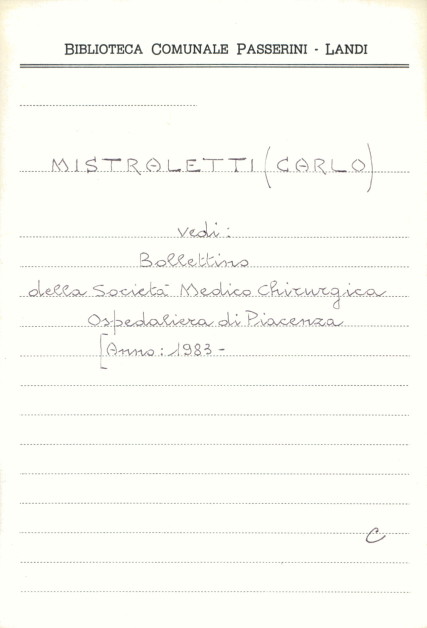 BIBLIOTECA COMUNALE PASSERINI - LANDI
MISTRALETTI (CARLO)
vedi:
Bollettino
della Società Medico Chirurgica
Ospedaliera di Piacenza
[Anno: 1983 -
C